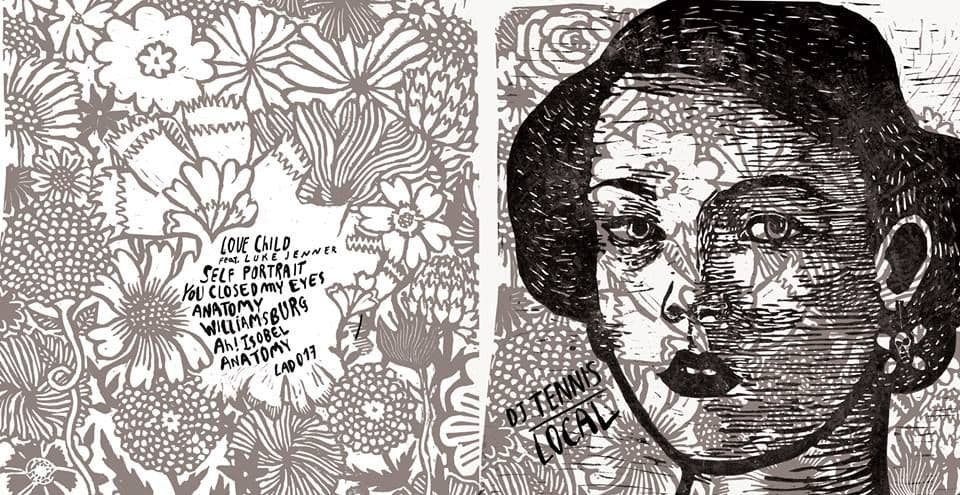 LOVE CHILD
FEAT. LUKE JENNER
SELF PORTRAIT
YOU CLOSED MY EYES
ANATOMY
WILLIAMSBURG
Ah! ISOBEL
ANATOMY
LAD017
DJ TENNIS
LOCAL